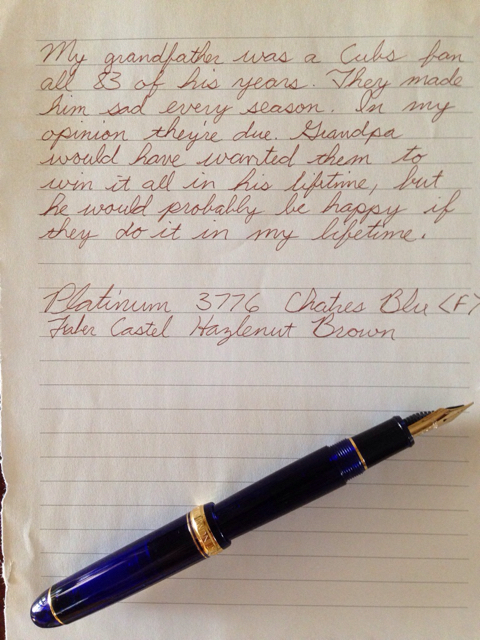 My grandfather was a Cubs fan
all 83 of his years. They made
him sad every season. In my
opinion they're due. Grandpa
would have wanted them to
win it all in his lifetime, but
he would probably be happy if
they do it in my lifetime.
Platinum 3776 Chatres Blue <F>
Faber Castel Hazlenut Brown